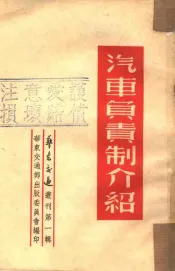 汽車負責制介紹
華東交通選刊第一輯
華東交通部出版委員會編印
愛護
意
注損